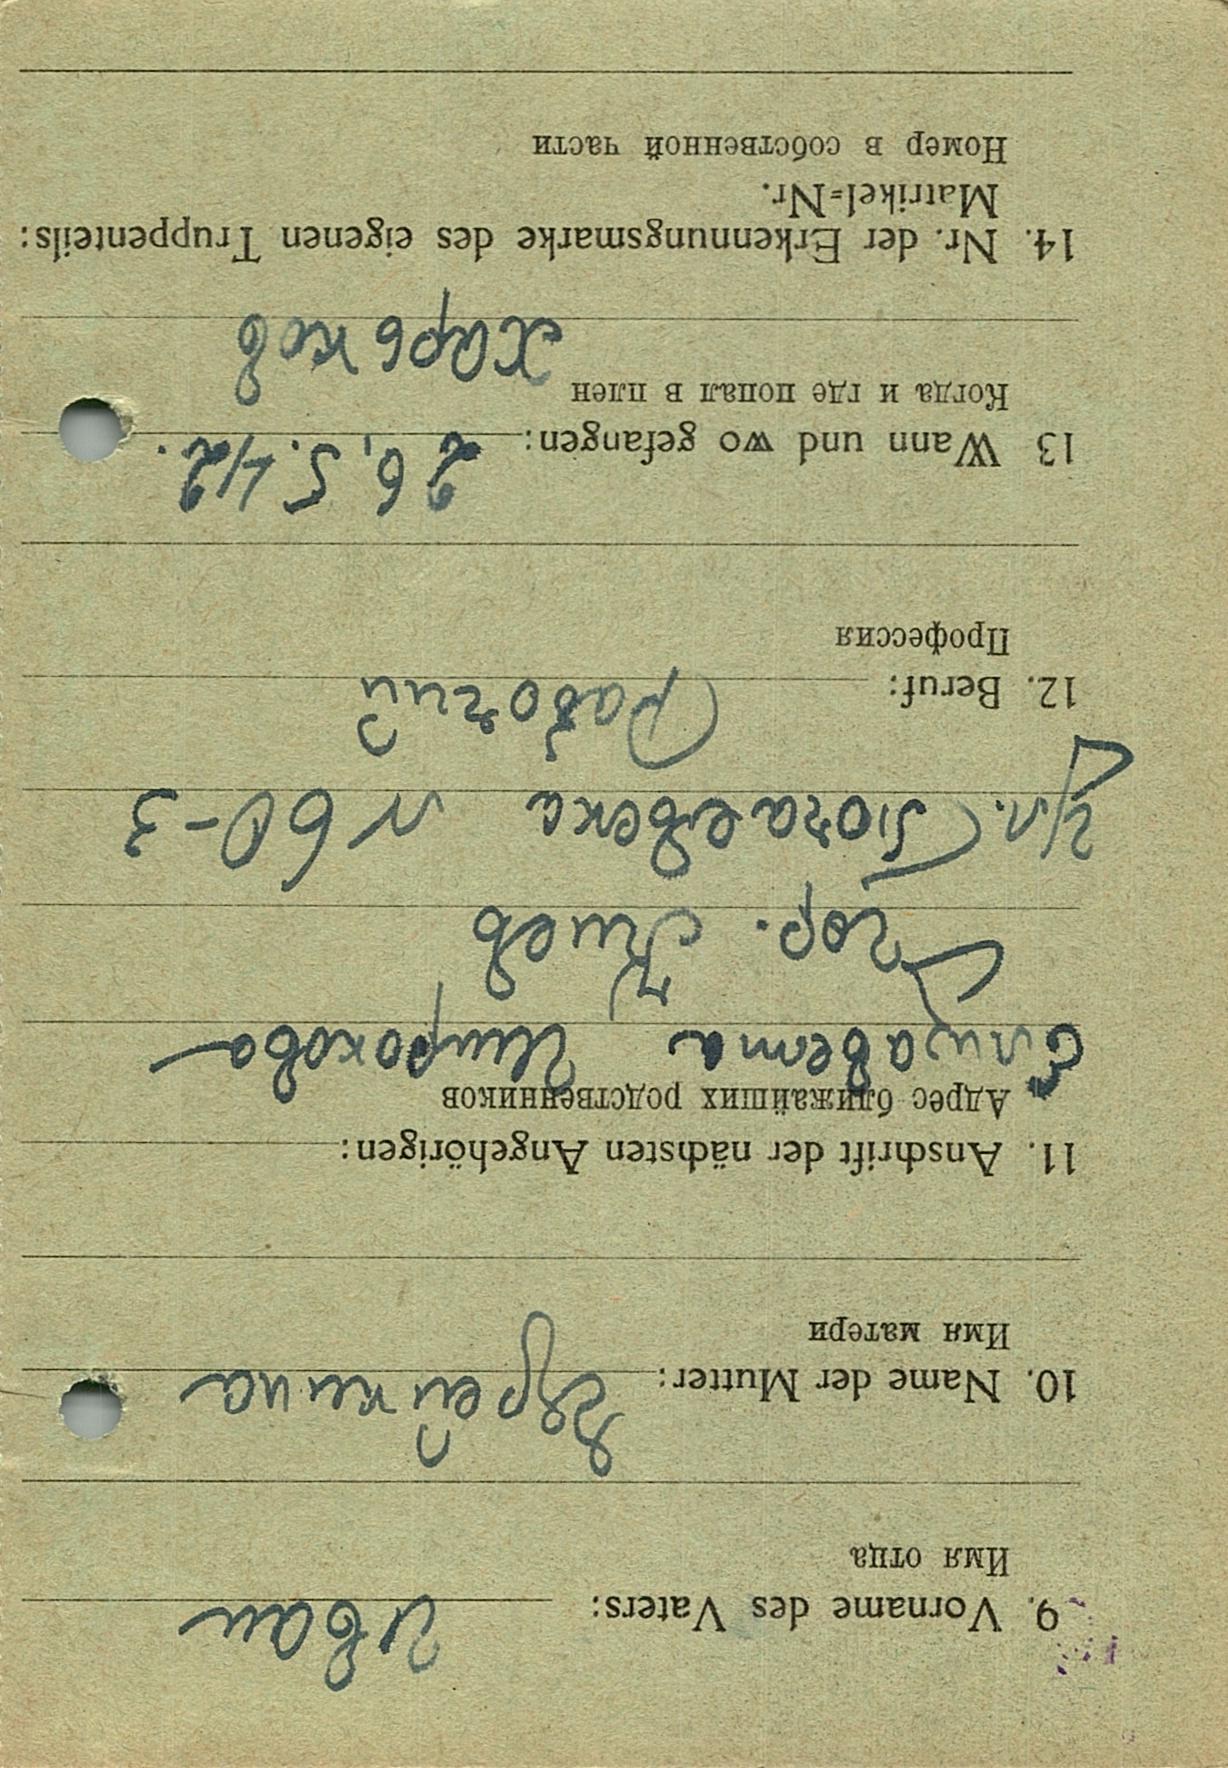 9. Vorname des Vaters: Иван
Имя отца
10. Name der Mutter:
Имя матери
11. Anschrift der nächsten Angehörigen:
Адрес ближайших родственников
Елизавета Широкова
гор. Киев
ул. N 60-3
12. Beruf: Рабочий
Профессия
13 Wann und wo gefangen: 26,5.42.
Когда и где попал в плен Харьков
14. Nr. der Erkennungsmarke des eigenen Truppenteils:
Matrikel=Nr.
Номер в собственной части